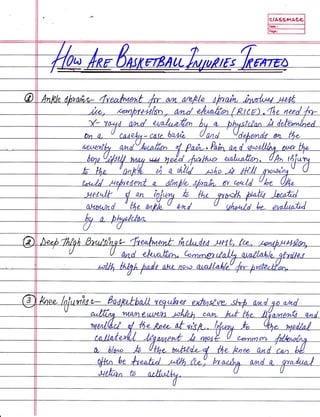 classmate
Date
Page
How Are Basketball Injuries Treated
① Ankle sprains - Treatment for an ankle sprain involves rest
ice, compression, and elevation (RICE). The need for
X-rays and evaluation by a physician is determined
on a case-by-case basis and depends on the
severity and location of Pain. Pain and swelling over the
bone itself may need further evaluation. An injury
to the ankle in a child who is still growing
could represent a simple sprain or could be the
result of an injury to the growth plates located
around the ankle and should be evaluated
by a physician.
② Deep Thigh Bruising - Treatment includes rest, ice, compression,
and elevation. Commercially available girdles
with thigh pads are now available for protection.
③ Knee Injuries - Basketball requires extensive stop and go and
cutting maneuvers which can put the ligaments and
menisci of the knee at risk. Injury to the medial
collateral ligament is most common following
a blow to the outside of the knee and can be
often be treated with ice, bracing and a gradual
return to activity.